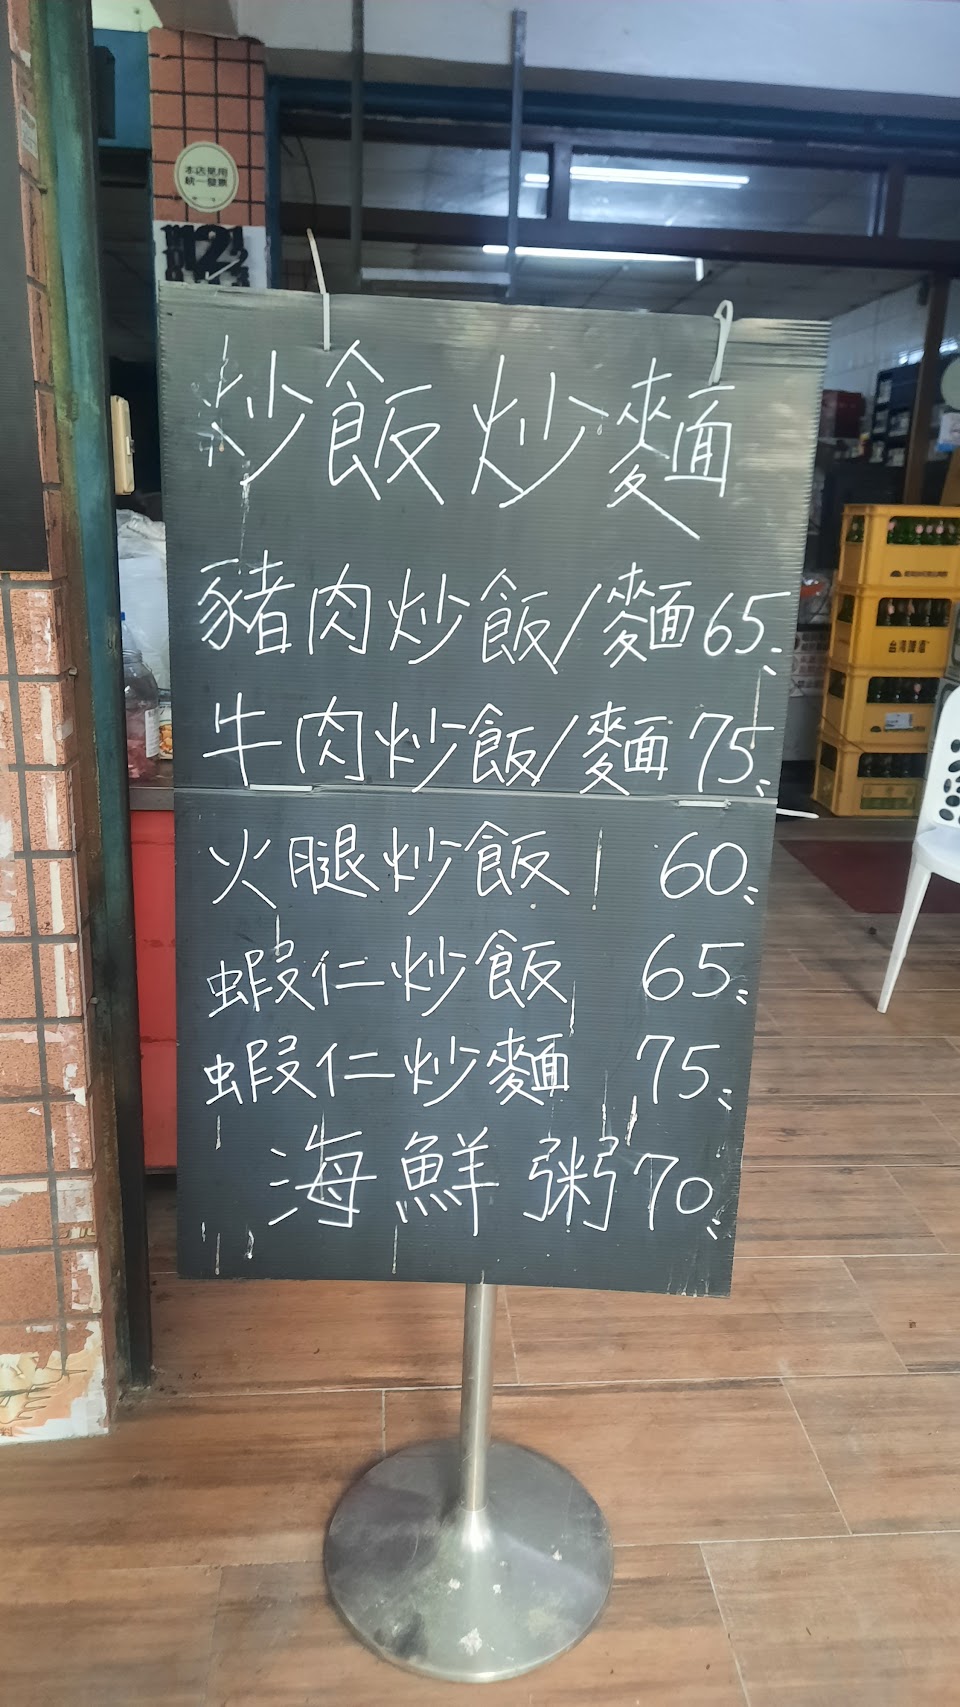 本店免用
統一發票
12
炒飯炒麵
豬肉炒飯/麵65
牛肉炒飯/麵75
火腿炒飯 60
蝦仁炒飯 65
蝦仁炒麵 75
海鮮粥70
台灣啤酒